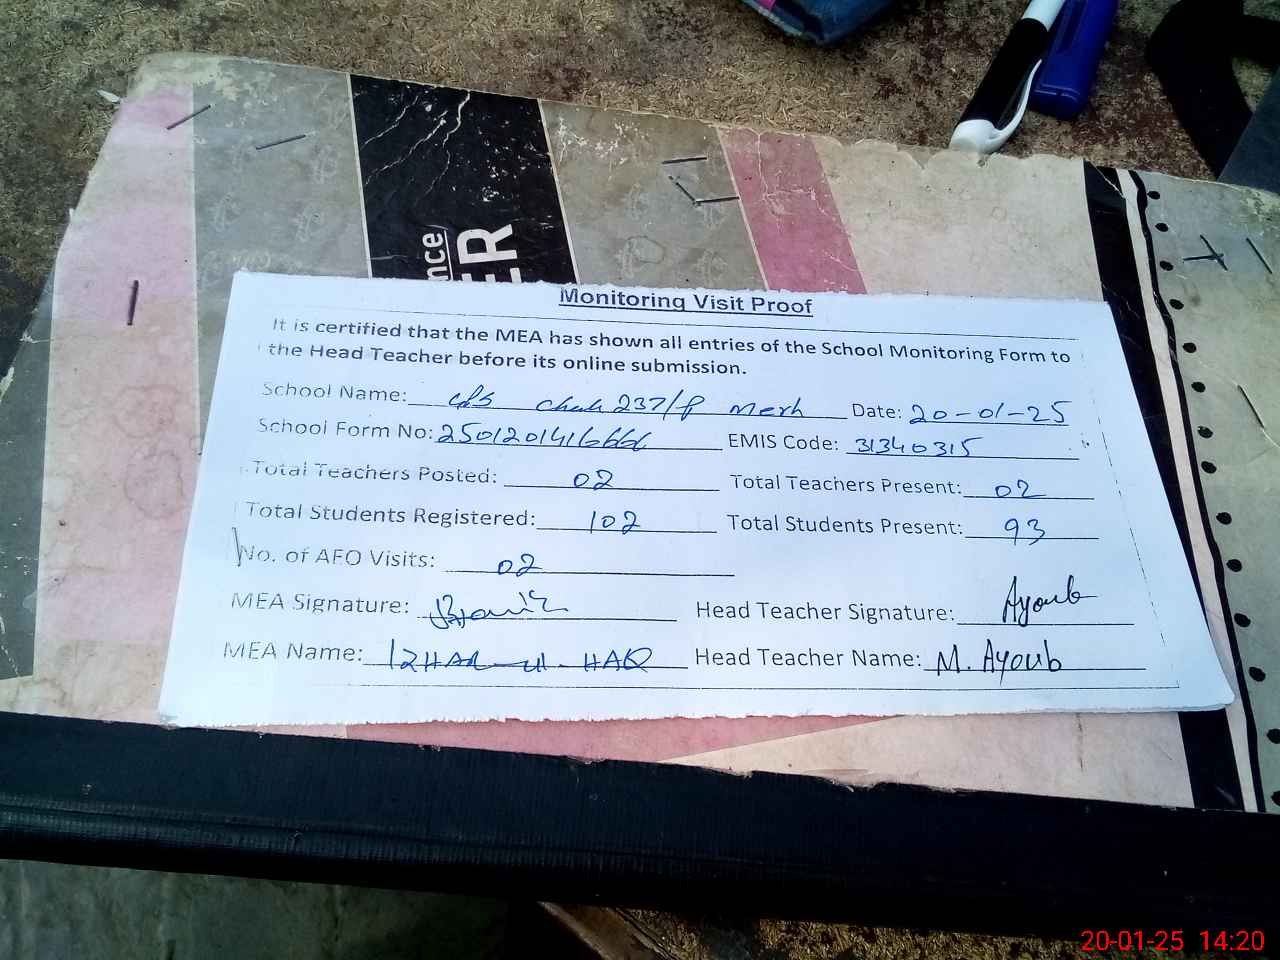 nce
ER
Monitoring Visit Proof
It is certified that the MEA has shown all entries of the School Monitoring Form to
the Head Teacher before its online submission.
School Name: GPS Chak 237/P Date: 20-01-25
School Form No: EMIS Code: 31340315
Total Teachers Posted: 02 Total Teachers Present: 02
Total Students Registered: 102 Total Students Present: 93
No. of AEO Visits: 02
MEA Signature: Head Teacher Signature: Ayoub
MEA Name: IZHAR-ul-HAQ Head Teacher Name: M. Ayoub
20-01-25 14:20